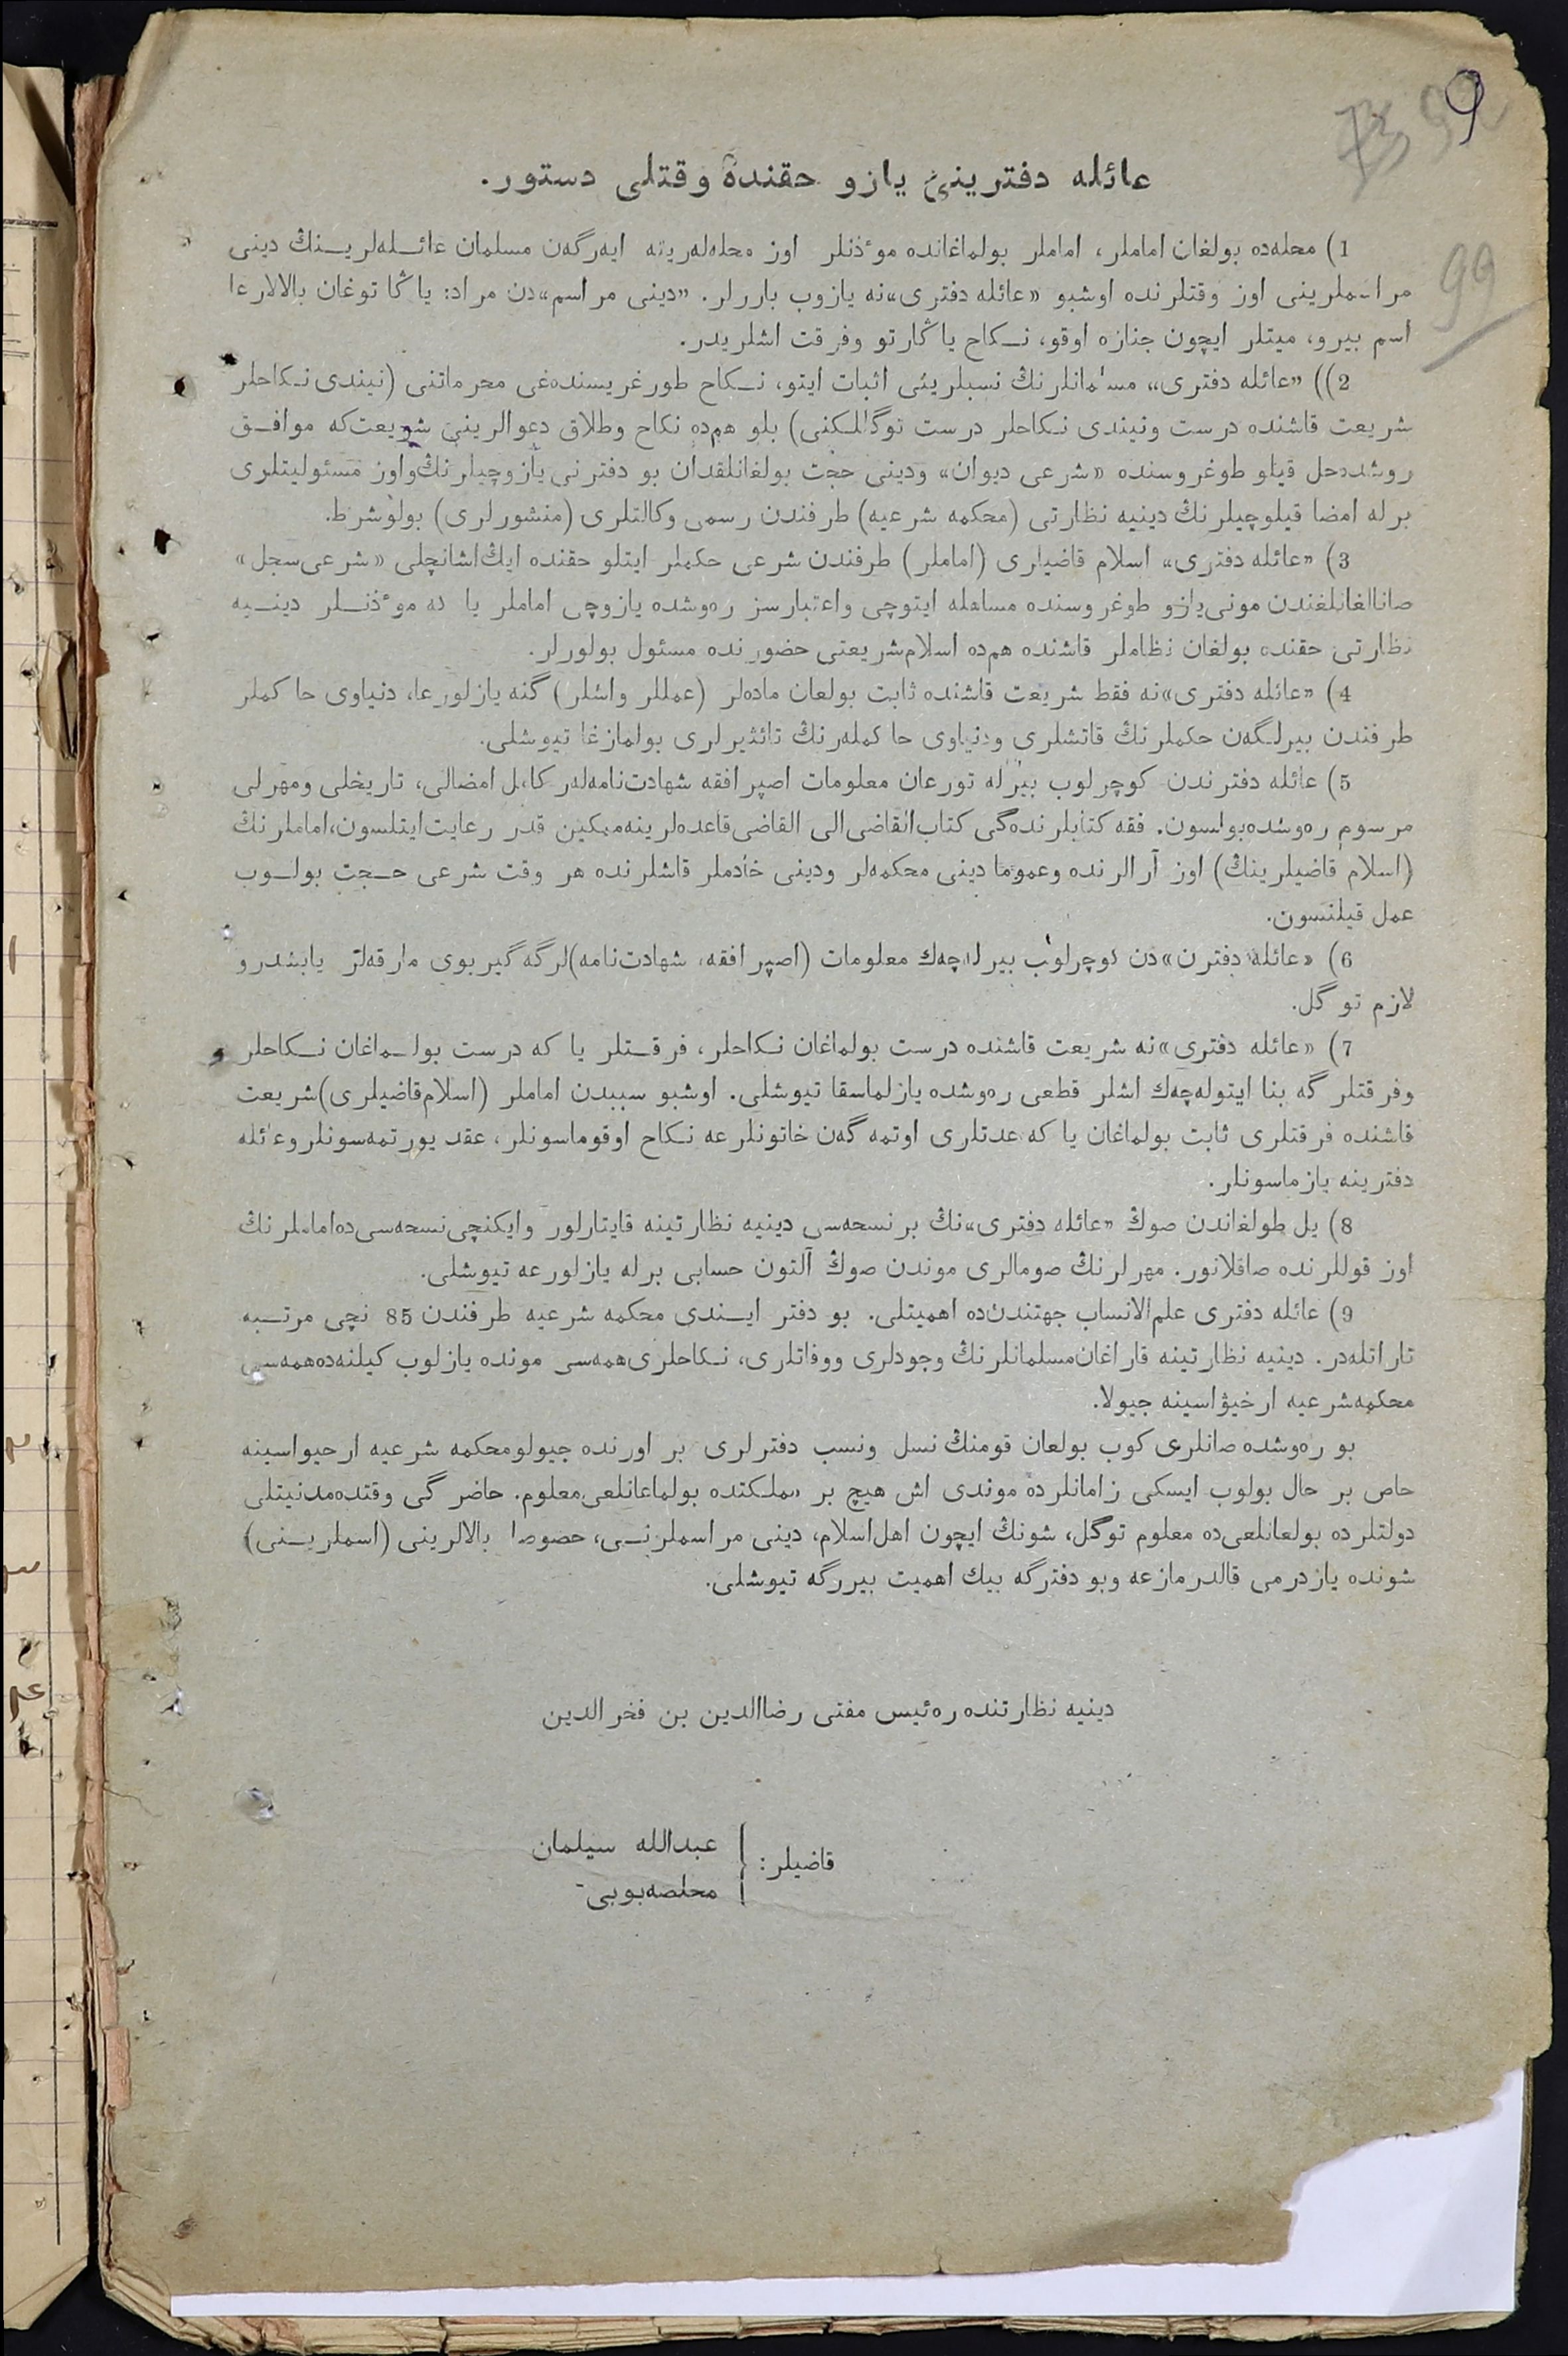 عائله دفترینی یازو حقنده وقتلی دستور.
1) محله‌ده بولغان اماملر، اماملر بولماغانده موٴذنلر اوز محله‌لەرینه ایەرگەن مسلمان عائـله‌لرینـڭ دینی
مراسملرینی اوز وقتلرنده اوشبو «عائله دفتری»نه یازوب باررلر. «دینی مراسم»دن مراد: یاڭا توغان بالالارغا
اسم بیرو، میتلر ایچون جنازه اوقو، نـکاح یاڭارتو وفرقت اشلریدر.
2)) «عائله دفتری» مسلمانلرنڭ نسبلرینی اثبات ایتو، نـکاح طورغریسنده‌غی محرماتنی (نیندی نـکاحلر
شریعت قاشنده درست ونیندی نـکاحلر درست توگللـکنی) بلو هم‌ده نکاح وطلاق دعوالرینی شریعت‌که موافـق
روشده‌حل قیلو طوغروسنده «شرعی دیوان» ودینی حجت بولغانلقدان بو دفترنی یازوچیلرنڭ‌واوز مسئولیتلری
برله امضا قیلوچیلرنڭ دینیه نظارتی (محکمه شرعیه) طرفندن رسمی وکالتلری (منشورلری) بولوشرط.
3) «عائله دفتری» اسلام قاضیلری (اماملر) طرفندن شرعی حکملر ایتلو حقنده ایڭ‌اشانچلی «شرعی‌سجل»
صاناالغانلغندن مونی‌یازو طوغروسنده مساهله ایتوچی واعتبارسز ره‌وشده یازوچی اماملر یا که موٴذنـلر دینـیه
نظارتی حقنده بولغان نظاملر قاشنده هم‌ده اسلام‌شریعتی حضورنده مسئول بولورلر.
4) «عائله دفتری»نه فقط شریعت قاشنده ثابت بولعان ماده‌لر (عمللر واشلر) گنه یازلورعا، دنیاوی حاکملر
طرفندن بیرلـگەن حکملرنڭ قاتشلری ودنیاوی حاکمله‌رنڭ تائثیرلری بولمازغا تیوشلی.
5) عائله دفترندن کوچرلوب بیرله تورعان معلومات اصپرافقه شهادت‌نامه‌لەر کامل امضالی، تاریخلی ومهرلی
مرسوم ره‌وشده‌بولسون. فقه کتابلرنده‌گی کتاب‌القاضی‌الی القاضی‌قاعده‌لرینه‌ممکین قدر رعایت‌ایتلسون،اماملرنڭ
(اسلام قاضیلرینڭ) اوز آرالرنده وعموما دینی محکمه‌لر ودینی خادملر قاشلرنده هر وقت شرعی حـجت بولـوب
عمل قیلنسون.
6) «عائله دفترن»دن کوچرلوب بیرلەچەك معلومات (اصپرافقه، شهادت‌نامه)لرگه گیربوی مارقه‌لر یابشدرو
لازم توگل.
7) «عائله دفتری»نه شریعت قاشنده درست بولماغان نـکاحلر، فرقـتلر یا که درست بولـماغان نـکاحلر
وفرقتلرگه بنا ایتوله‌چەك اشلر قطعی ره‌وشده یازلماسقا تیوشلی. اوشبو سببدن اماملر (اسلام‌قاضیلری)شریعت
قاشنده فرقتلری ثابت بولماغان یا که عدتلری اوتمه گەن خاتونلرعه نـکاح اوقوماسونلر، عقد یورتمه‌سونلروعائله
دفترینه یازماسونلر.
8) یل طولغاندن صوڭ «عائله دفتری»نڭ برنسحه‌سی دینیه نظارتینه قایتارلور وایکنچی‌نسحه‌سی‌ده‌اماملرنڭ
اوز قوللرنده صاقلانور. مهرلرنڭ صومالری موندن صوڭ آلتون حسابی برله یازلورعه تیوشلی.
9) عائله دفتری علم‌الانساب جهتندن‌ده اهمیتلی. بو دفتر ایـندی محکمه شرعیه طرفندن 85 نچی مرتـبه
تاراتله‌در. دینیه نظارتینه قاراغان‌مسلمانلرنڭ وجودلری ووفاتلری، نـکاحلری‌همه‌سی مونده یازلوب کیلنه‌ده‌همه‌سی
محکمه‌شرعیه ارخیۋاسینه جیولا.
بو ره‌وشده صانلری کوب بولعان قومنڭ نسل ونسب دفترلری بر اورنده جیولومحکمه شرعیه ارحیواسینه
حاص بر حال بولوب ایسکی زامانلرده موندی اش هیچ بر مملـکتده بولماعانلعی‌معلوم. حاضرگی وقتده‌مدنیتلی
دولتلرده بولعانلعی‌ده معلوم توگل، شونڭ ایچون اهل‌اسلام، دینی مراسملرنـی، حصوصا بالالرینی (اسملریـنی)
شونده یازدرمی قالدرمازعه وبو دفترگه بیك اهمیت بیررگه تیوشلی.
دینیه نظارتنده ره‌ئیس مفتی رضاالدین بن فخرالدین
قاضیلر: عبدالله سیلمان
محلصه‌بوبی
9
99